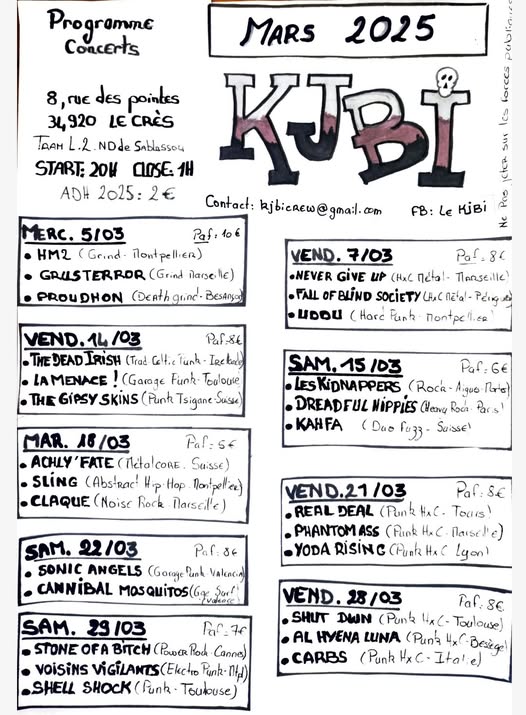 Programme
Concerts
MARS 2025
8, rue des pointes
34920 LE CRÈS
TRAM L.2. ND de Sablassou
START: 20H CLOSE: 1H
ADH 2025: 2€
KJBI
Contact: kjbicrew@gmail.com FB: Le KJBi
Ne Pas jeter sur les forces publiques
MERC. 5/03 Paf: 10€
• HM2 (Grind - Montpellier)
• GRUSTERROR (Grind Marseille)
• PROUDHON (Death grind - Besançon)
VEND. 7/03 Paf: 8€
• NEVER GIVE UP (HxC Métal - Marseille)
• FALL OF BLIND SOCIETY (HxC Métal -
• UDDU (Hard Punk - Montpellier)
VEND. 14/03 Paf: 8€
• THE DEAD IRISH (Trad Celtic Punk - Irelande)
• LA MENACE ! (Garage Punk - Toulouse)
• THE GIPSY SKINS (Punk Tsigane - Suisse)
SAM. 15/03 Paf: 6€
• LES KIDNAPPERS (Rock - Aigues-Mortes)
• DREADFUL HIPPIES (Heavy Rock - Paris)
• KAHFA (Duo Fuzz - Suisse)
MAR. 18/03 Paf: 6€
• ACHLY'FATE (Métalcore - Suisse)
• SLING (Abstract Hip-Hop - Montpellier)
• CLAQUE (Noise Rock - Marseille)
VEND. 21/03 Paf: 8€
• REAL DEAL (Punk HxC - Tours)
• PHANTOM ASS (Punk HxC - Marseille)
• YODA RISING (Punk HxC Lyon)
SAM. 22/03 Paf: 8€
• SONIC ANGELS (Garage Punk - Valencia)
• CANNIBAL MOSQUITOS (Gore Surf Valence)
VEND. 28/03 Paf: 8€
• SHUT DWN (Punk HxC - Toulouse)
• AL HYENA LUNA (Punk HxC - Bessèges)
• CARBS (Punk HxC - Italie)
SAM. 29/03 Paf: 7€
• STONE OF A BITCH (Power Rock - Cannes)
• VOISINS VIGILANTS (Electro Punk - Mtpl)
• SHELL SHOCK (Punk - Toulouse)